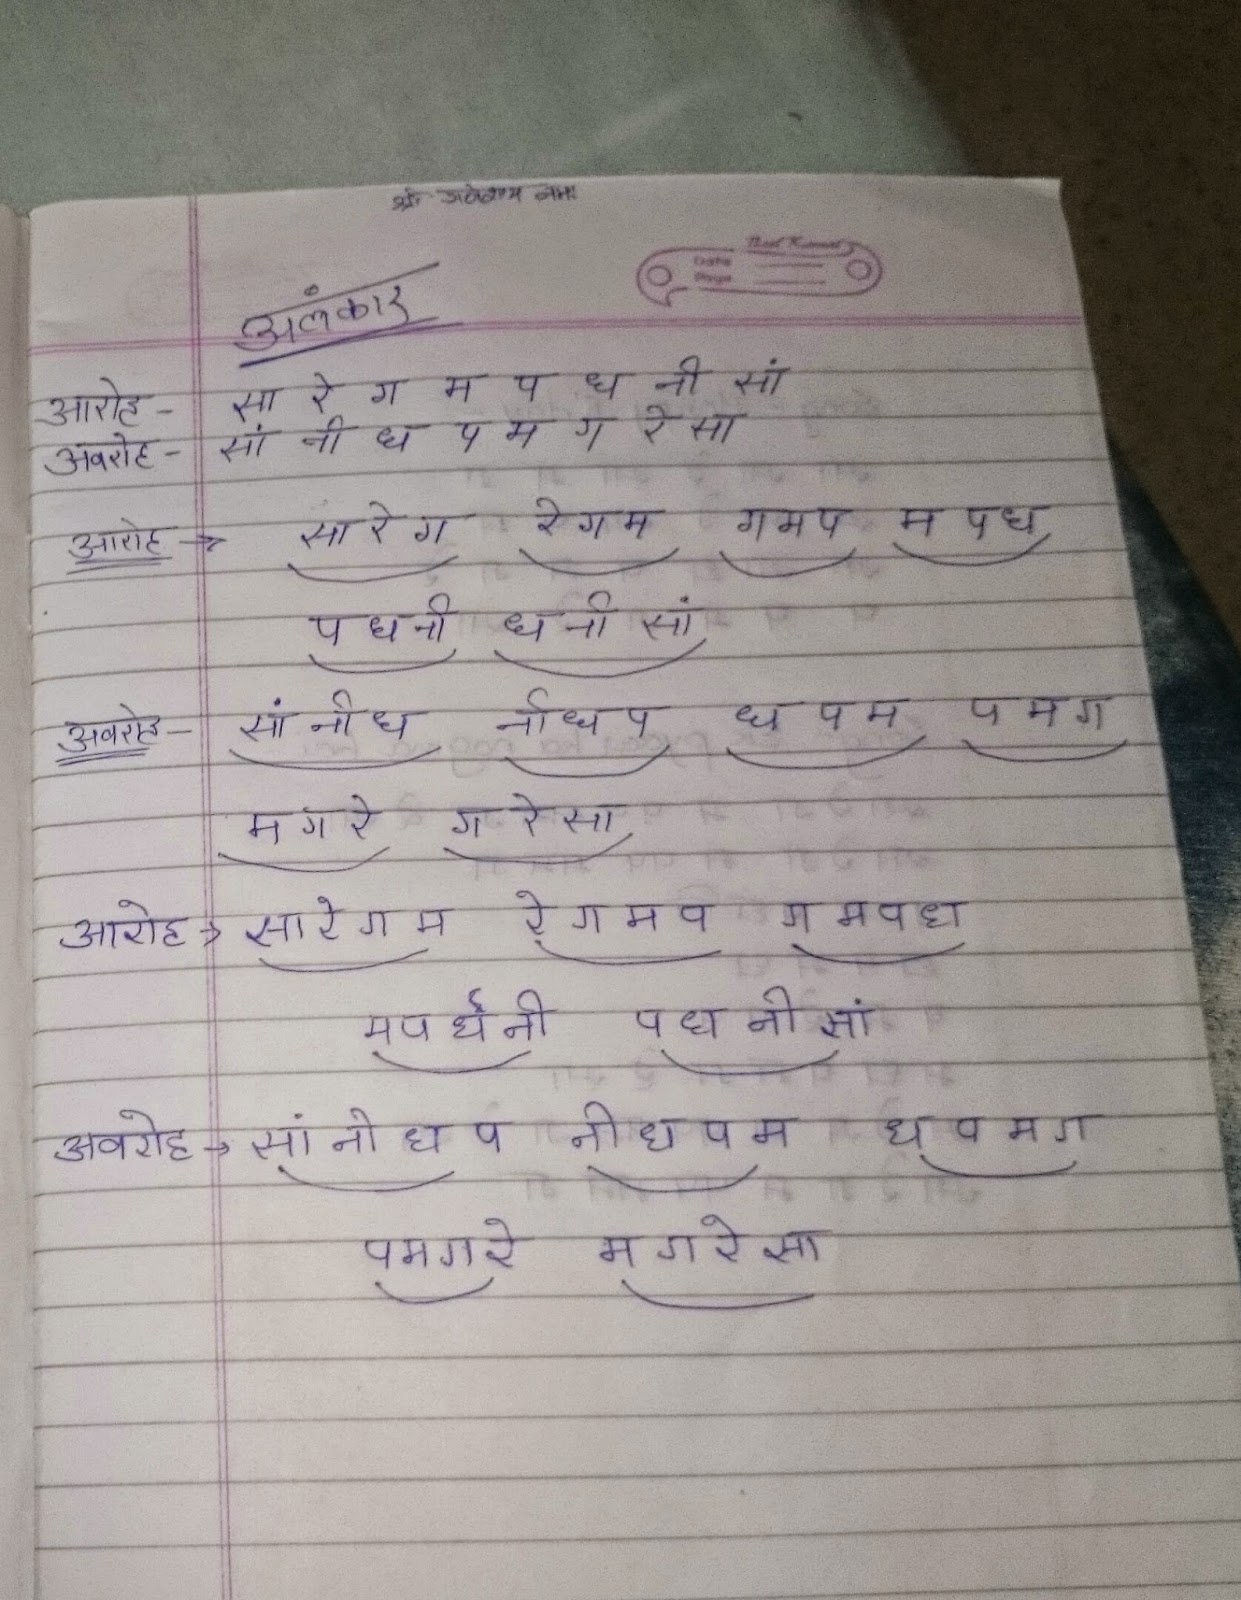 श्री गणेशाय नमः
Date
Page
अलंकार
आरोह - सा रे ग म प ध नी सां
अवरोह - सां नी ध प म ग रे सा
आरोह → सा रे ग रे ग म ग म प म प ध
प ध नी ध नी सां
अवरोह - सां नी ध नी ध प ध प म प म ग
म ग रे ग रे सा
आरोह → सा रे ग म रे ग म प ग म प ध
म प ध नी प ध नी सां
अवरोह → सां नी ध प नी ध प म ध प म ग
प म ग रे म ग रे सा